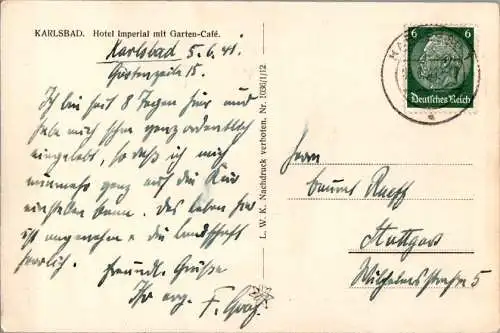 KARLSBAD. Hotel Imperial mit Garten-Café.
Karlsbad 5.6.41.
15.
Ich bin seit 8 Tagen hier und
habe mich schon ganz ordentlich
eingelebt, so daß ich mich
nunmehr ganz auf die Kur
einstellen kann. Das Leben hier
ist angenehm & die Landschaft
herrlich.
Freundl. Grüße
Ihr erg. F.
L. W. K. Nachdruck verboten. Nr. 1036/1/12
6 6
Deutsches Reich
Herrn
Stuttgart
Wilhelmstraße 5